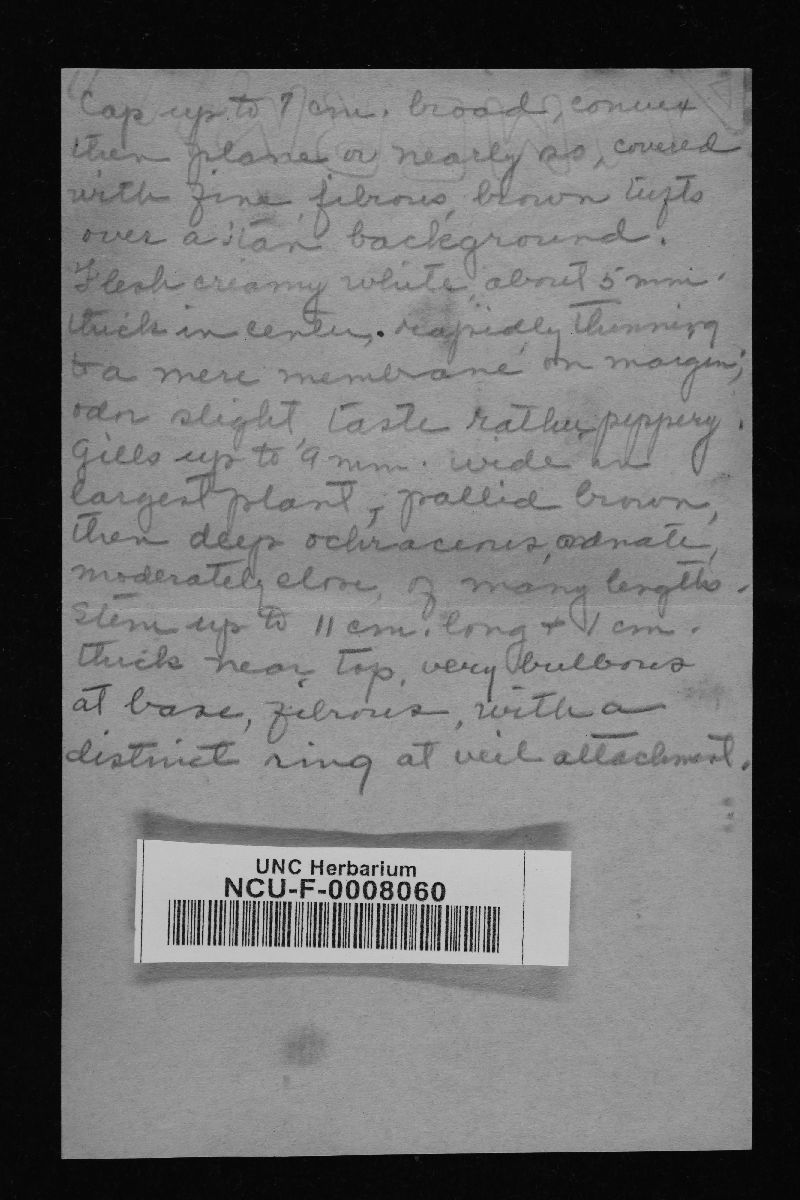 Cap up to 7 cm. broad, convex
then plane or nearly so, covered
with fine, fibrous, brown tufts
over a tan background.
Flesh creamy white, about 5 mm.
thick in center, rapidly thinning
to a mere membrane on margin;
odor slight taste rather peppery.
Gills up to 9 mm. wide in
largest plant, pallid brown,
then deep ochraceous, adnate,
moderately close, of many lengths.
Stem up to 11 cm. long + 1 cm.
thick near top, very bulbous
at base, fibrous, with a
distinct ring at veil attachment.
UNC Herbarium
NCU-F-0008060